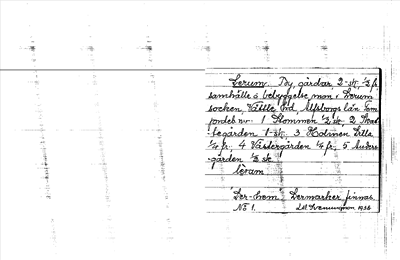 Lerum. By, gårdar, 2 stk, 3/4 fr,
samhälle o bebyggelse, mon i Lerum
socken Vättle hd, Älfsborgs län Tom
jordeb nr. 1 Stommen 1/2 sk 2 Stret
begården 1 sk. 3 Holmen Lilla
1/4 fr, 4 Västergården 1/4 fr, 5 Anders-
gården 1/2 sk
Leram
Ler-hem. Lermarker finnas.
No 1. 1938